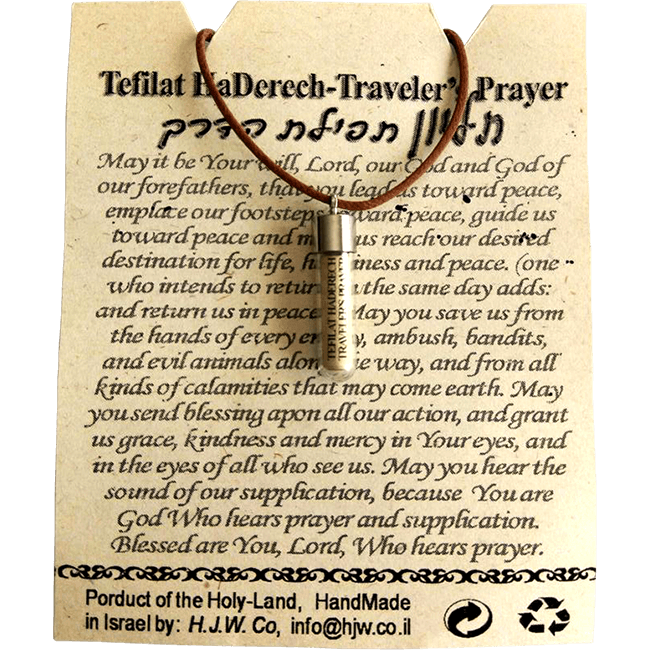 Tefilat HaDerech-Traveler's Prayer
תליון תפילת הדרך
May it be Your will, Lord, our God and God of
our forefathers, that you lead us toward peace,
emplace our footsteps toward peace, guide us
toward peace and make us reach our desired
destination for life, happiness and peace. (one
who intends to return the same day adds:
and return us in peace May you save us from
the hands of every enemy, ambush, bandits,
and evil animals along the way, and from all
kinds of calamities that may come earth. May
you send blessing apon all our action, and grant
us grace, kindness and mercy in Your eyes, and
in the eyes of all who see us. May you hear the
sound of our supplication, because You are
God Who hears prayer and supplication.
Blessed are You, Lord, Who hears prayer.
TEFILAT HADERECH
TRAVELER'S PRAYER
Porduct of the Holy-Land, HandMade
in Israel by: H.J.W. Co, info@hjw.co.il